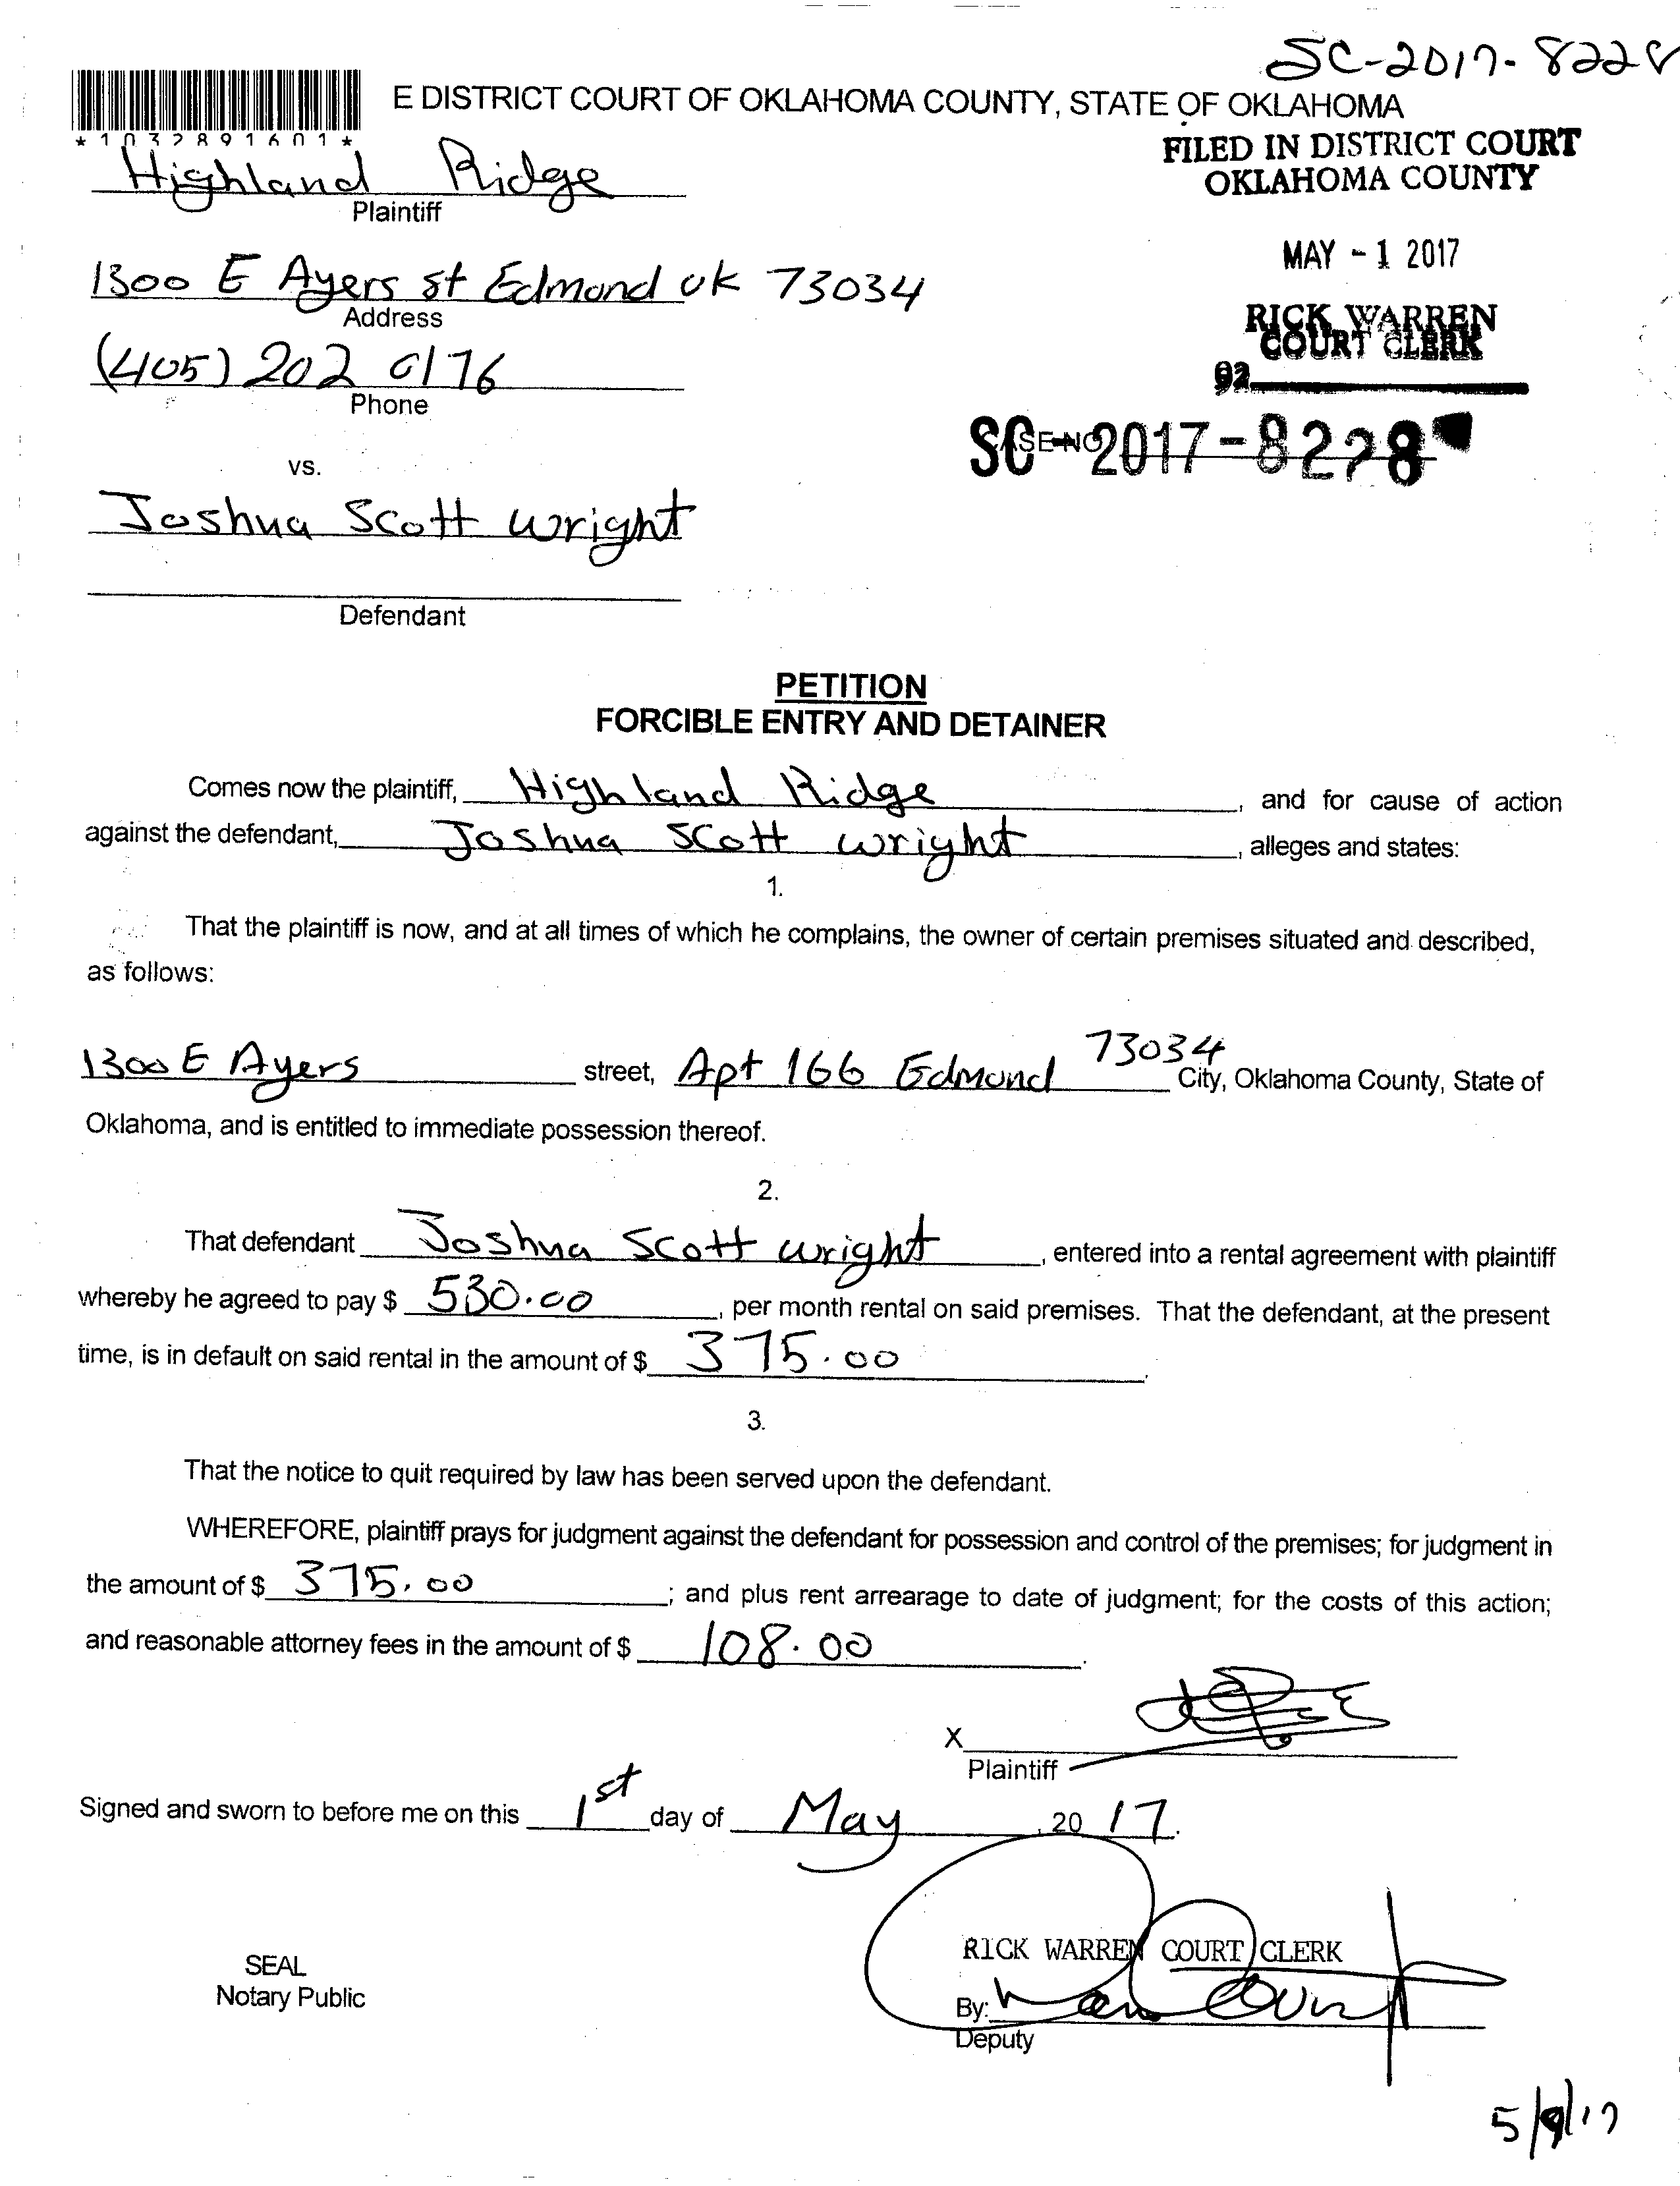 SC-2017-8228
E DISTRICT COURT OF OKLAHOMA COUNTY, STATE OF OKLAHOMA
*1032891601*
FILED IN DISTRICT COURT
OKLAHOMA COUNTY
Highland Ridge
Plaintiff
MAY - 1 2017
1300 E Ayers st Edmond ok 73034
Address
RICK WARREN
COURT CLERK
(405) 202 0176
Phone
92
SC-2017-8228
vs.
Joshua Scott wright
Defendant
PETITION
FORCIBLE ENTRY AND DETAINER
Comes now the plaintiff, Highland Ridge, and for cause of action
against the defendant, Joshua Scott wright, alleges and states:
1.
That the plaintiff is now, and at all times of which he complains, the owner of certain premises situated and described,
as follows:
1300 E Ayers street, Apt 166 Edmond 73034 City, Oklahoma County, State of
Oklahoma, and is entitled to immediate possession thereof.
2.
That defendant Joshua Scott wright, entered into a rental agreement with plaintiff
whereby he agreed to pay $ 530.00, per month rental on said premises. That the defendant, at the present
time, is in default on said rental in the amount of $ 375.00.
3.
That the notice to quit required by law has been served upon the defendant.
WHEREFORE, plaintiff prays for judgment against the defendant for possession and control of the premises; for judgment in
the amount of $ 375.00; and plus rent arrearage to date of judgment; for the costs of this action;
and reasonable attorney fees in the amount of $ 108.00.
X
Plaintiff
Signed and sworn to before me on this 1st day of May, 2017.
RICK WARREN COURT CLERK
SEAL
Notary Public
By:
Deputy
5/9/17